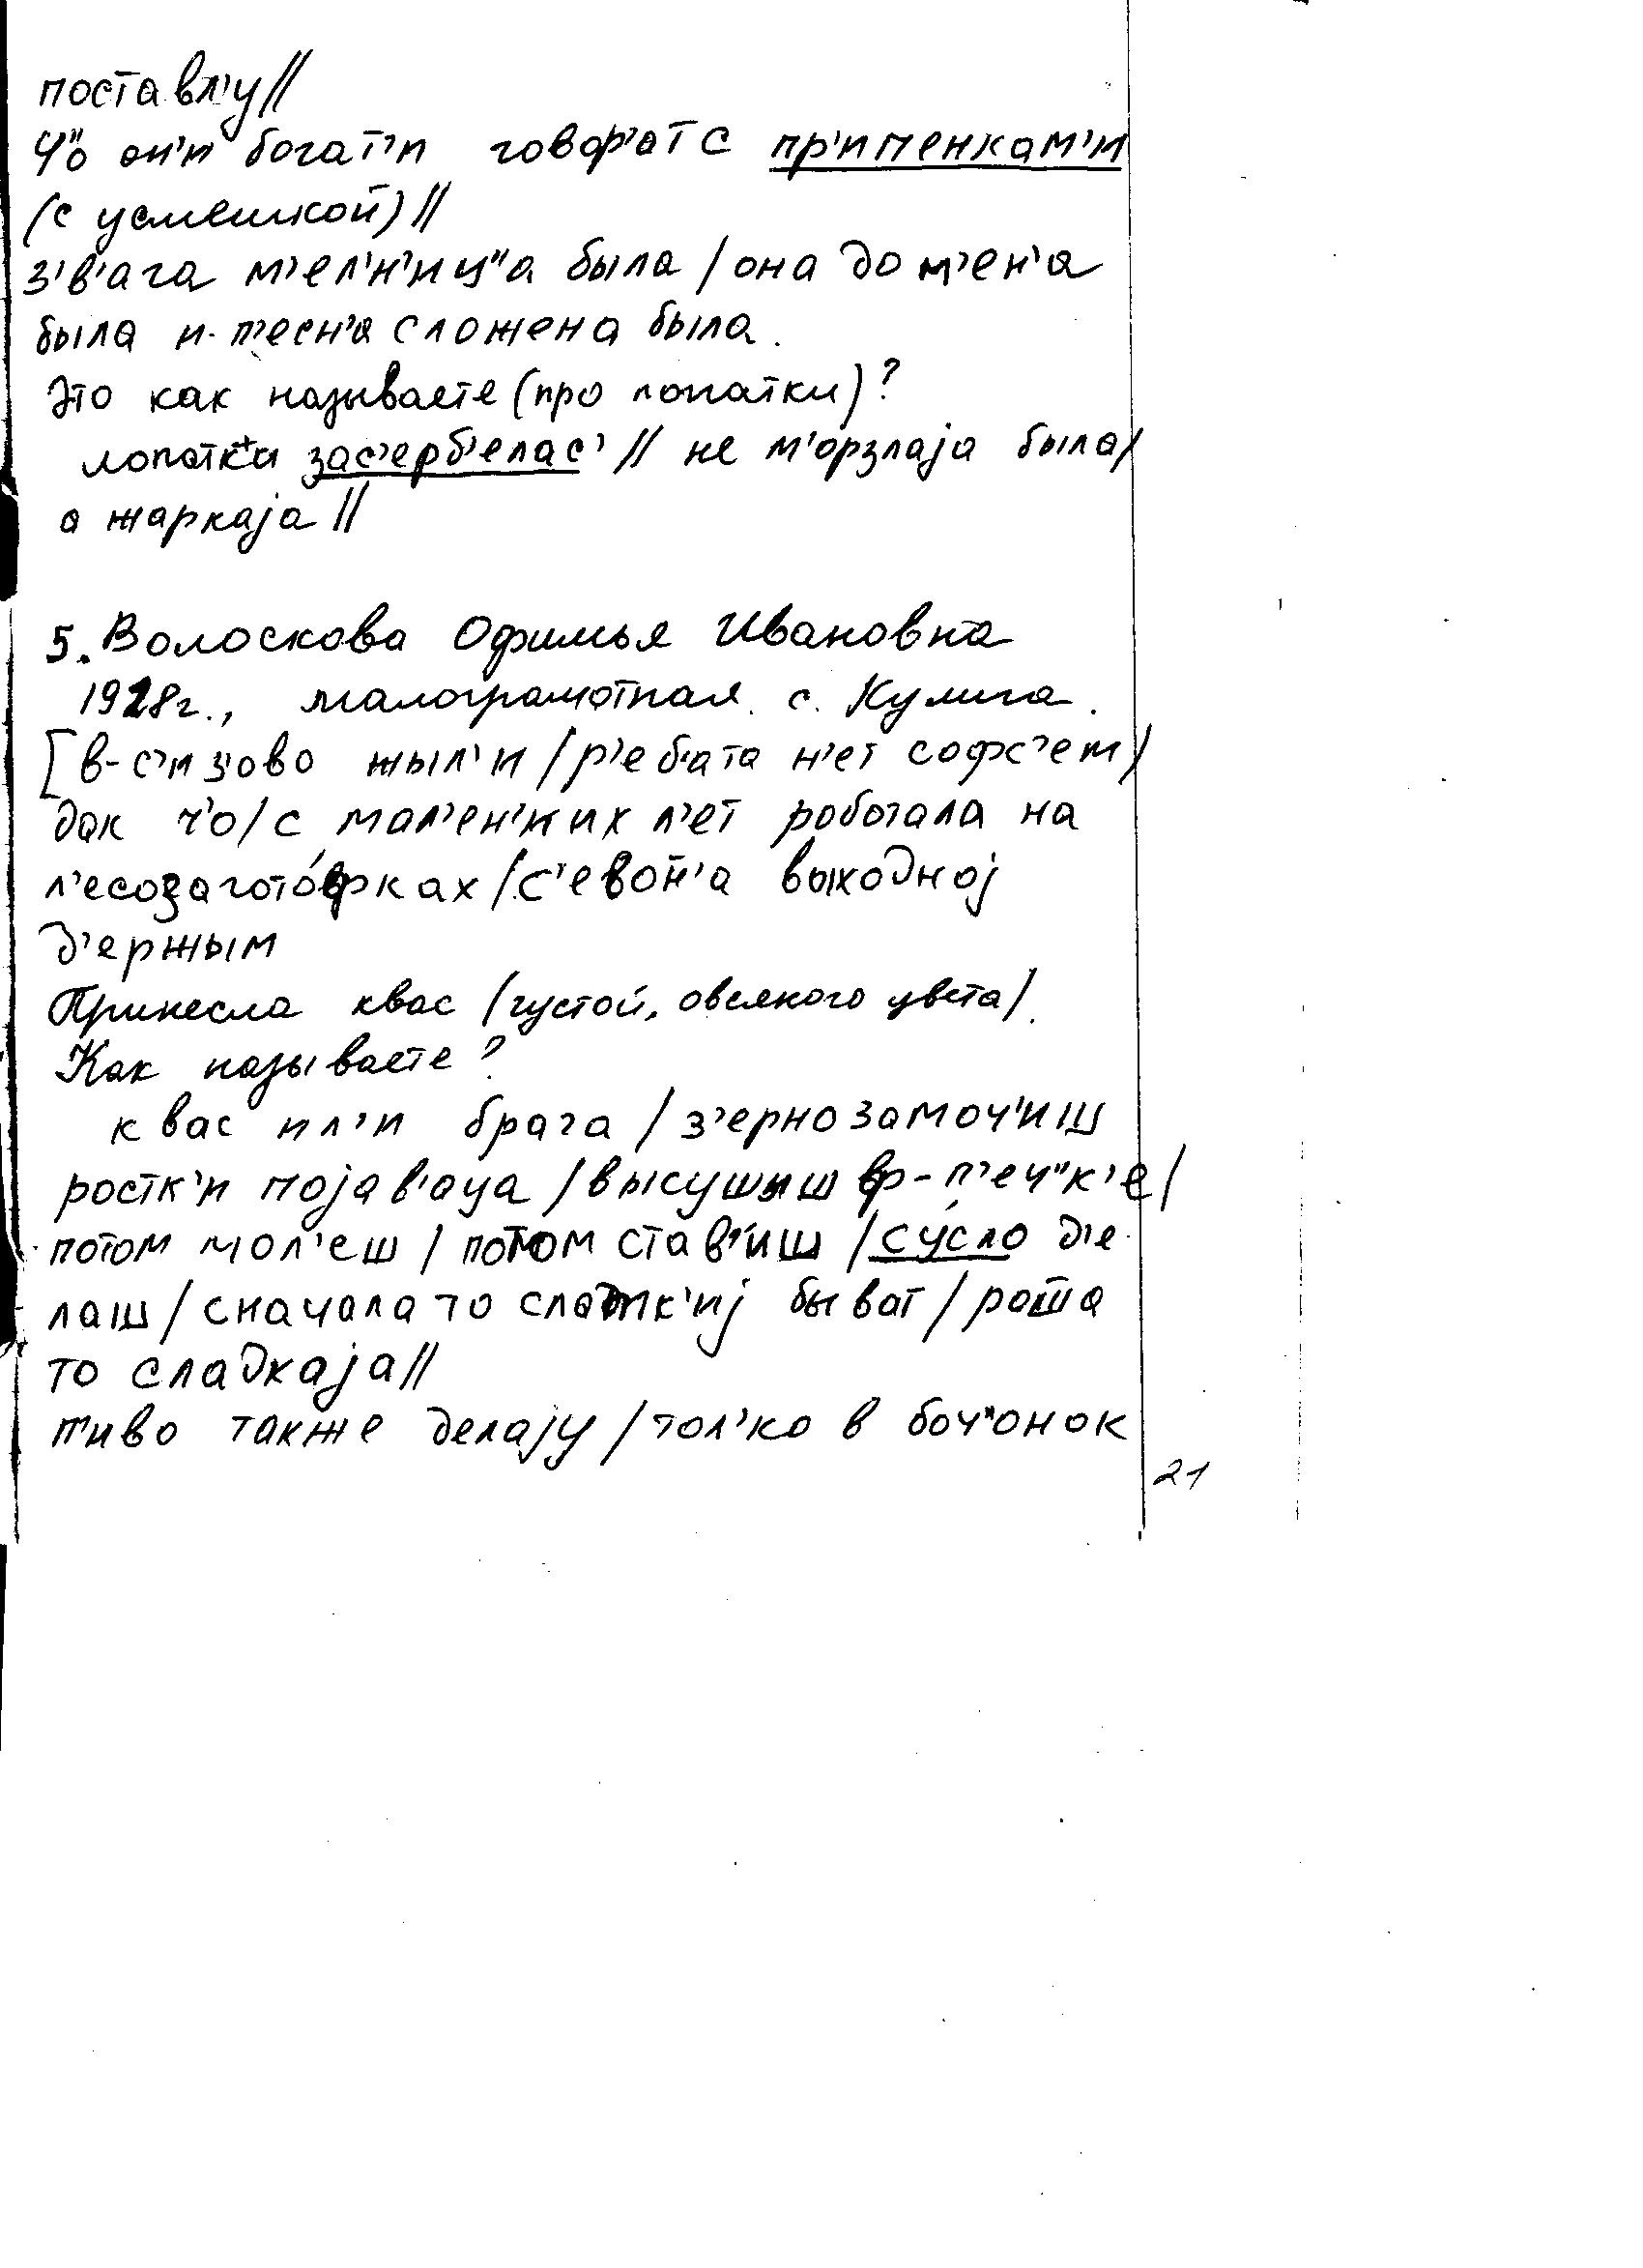 поставл'у//
ч"о он'и богат'и говор'ат с пр'ипенкам'и
(с усмешкой)//
з'в'ага м'ел'н'иц"а была/она до м'ен'а
была и п'есн'а сложена была.
Это как называете (про лопатки)?
лопатк'и зас'ерб'елас'// не м'орзлаjа была/
а жаркаjа//
5. Волоскова Офимья Ивановна
1928г., малограмотная. с. Кулига.
[в-с'из'ово жыл'и/р'еб'ата н'ет софс'ем/
дак ч'о/с мал'ен'ких л'ет робогала на
л'есозагото́фках/с'евон'а выходноj
д'ержым
Принесла квас (густой, овсяного цвета).
Как называете?
квас ил'и брага/з'ерно замоч'иш
ростк'и поjав'ауа/высушыш ф-п'еч"к'е/
потом мол'еш/потом став'иш/су́сло д'е
лаш/сначала то слатк'иj быват/роша
то сладкаjа//
п'иво также делаjу/тол'ко в боч"онок
21